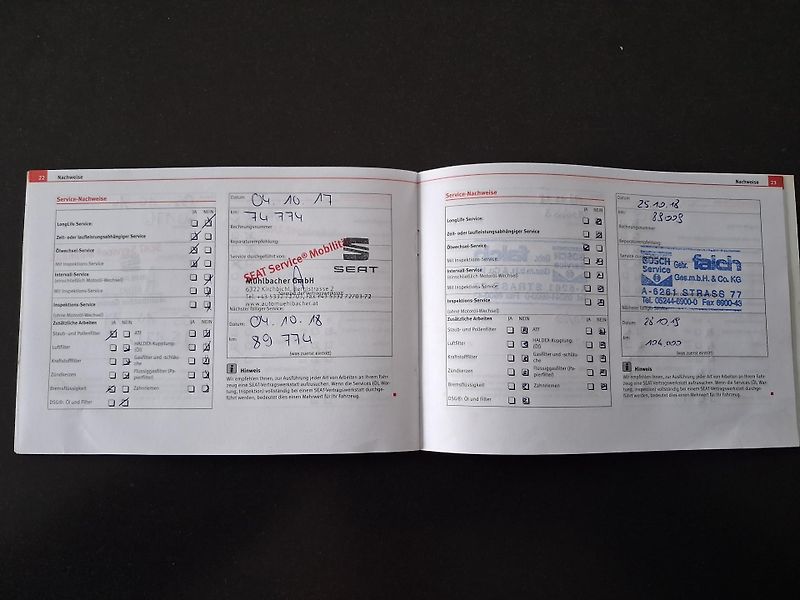 22 Nachweise
Service-Nachweise
JA NEIN
LongLife Service:
Zeit- oder laufleistungsabhängiger Service
Ölwechsel-Service
Mit Inspektions-Service
Intervall-Service
(einschließlich Motoröl-Wechsel)
Mit Inspektions-Service
Inspektions-Service
(ohne Motoröl-Wechsel)
Zusätzliche Arbeiten JA NEIN JA NEIN
Staub- und Pollenfilter ATF
Luftfilter HALDEX-Kupplung (Öl)
Kraftstofffilter
Zündkerzen Flüssiggasfilter (Papierfilter)
Bremsflüssigkeit Zahnriemen
DSG®: Öl und Filter
Datum: 04.10.17
km: 74 774
Rechnungsnummer:
Reparaturempfehlung:
Service durchgeführt von:
SEAT Service® Mobilität
SEAT
Mühlbacher GmbH
www.automuehlbacher.at
Nächster fälliger Service:
Datum: 04.10.18
km: 89 774
(was zuerst eintritt)
i Hinweis
Wir empfehlen Ihnen, zur Ausführung jeder Art von Arbeiten an Ihrem Fahr-
zeug eine SEAT-Vertragswerkstatt aufzusuchen. Wenn die Services (Öl, War-
tung, Inspektion) vollständig bei einem SEAT-Vertragswerkstatt durchge-
führt werden, bedeutet dies einen Mehrwert für Ihr Fahrzeug.
Nachweise 23
Service-Nachweise
JA NEIN
LongLife Service:
Zeit- oder laufleistungsabhängiger Service
Ölwechsel-Service
Mit Inspektions-Service
Intervall-Service
(einschließlich Motoröl-Wechsel)
Mit Inspektions-Service
Inspektions-Service
(ohne Motoröl-Wechsel)
Zusätzliche Arbeiten JA NEIN JA NEIN
Staub- und Pollenfilter ATF
Luftfilter HALDEX-Kupplung (Öl)
Kraftstofffilter
Zündkerzen Flüssiggasfilter (Papierfilter)
Bremsflüssigkeit Zahnriemen
DSG®: Öl und Filter
Datum: 25.10.18
km: 89009
Rechnungsnummer:
Reparaturempfehlung:
BOSCH Gebr. faich
Service Ges.m.b.H. & Co. KG
A-6261 STRASS 77
Tel. 05244-6900-0 Fax 6900-43
Datum:
km: 104.000
(was zuerst eintritt)
i Hinweis
Wir empfehlen Ihnen, zur Ausführung jeder Art von Arbeiten an Ihrem Fahr-
zeug eine SEAT-Vertragswerkstatt aufzusuchen. Wenn die Services (Öl, War-
tung, Inspektion) vollständig bei einem SEAT-Vertragswerkstatt durchge-
führt werden, bedeutet dies einen Mehrwert für Ihr Fahrzeug.